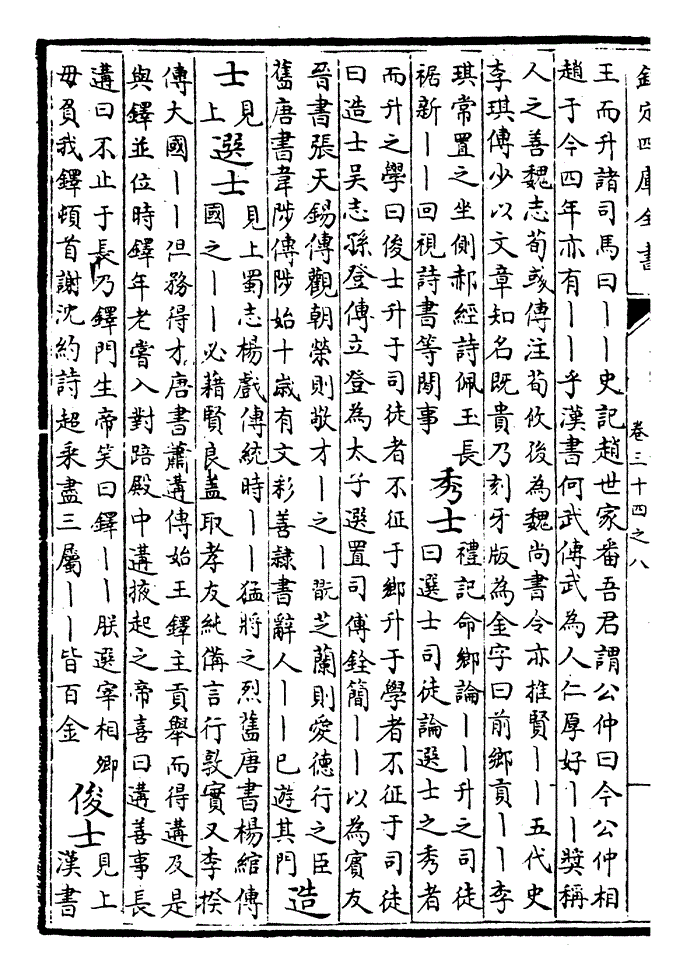 欽定四庫全書
卷三十四之八
王而升諸司馬曰丨丨史記趙世家番吾君謂公仲曰今公仲相
趙于今四年亦有丨丨乎漢書何武傳武為人仁厚好丨丨奬稱
人之善魏志荀彧傳注荀攸後為魏尚書令亦推賢丨丨五代史
李琪傳少以文章知名既貴乃刻牙版為金字曰前鄉貢丨丨李
琪常置之坐側郝經詩佩玉長
裾新丨丨回視詩書等閒事
秀士
禮記命鄉論丨丨升之司徒
曰選士司徒論選士之秀者
而升之學曰俊士升于司徒者不征于鄉升于學者不征于司徒
曰造士吳志孫登傳立登為太子選置司傅銓簡丨丨以為賓友
晉書張天錫傳觀朝榮則敬才丨之丨翫芝蘭則愛德行之臣
舊唐書韋陟傳陟始十歲有文彩善隸書辭人丨丨已遊其門
造
士
見
上
選士
見上蜀志楊戲傳統時丨丨猛將之烈舊唐書楊綰傳
國之丨丨必藉賢良蓋取孝友純備言行敦實又李揆
傳大國丨丨但務得才唐書蕭遘傳始王鐸主貢舉而得遘及是
與鐸並位時鐸年老嘗入對踣殿中遘掖起之帝喜曰遘善事長
遘曰不止于長乃鐸門生帝笑曰鐸丨丨朕選宰相卿
毋負我鐸頓首謝沈約詩超乘盡三屬丨丨皆百金
俊士
見上
漢書